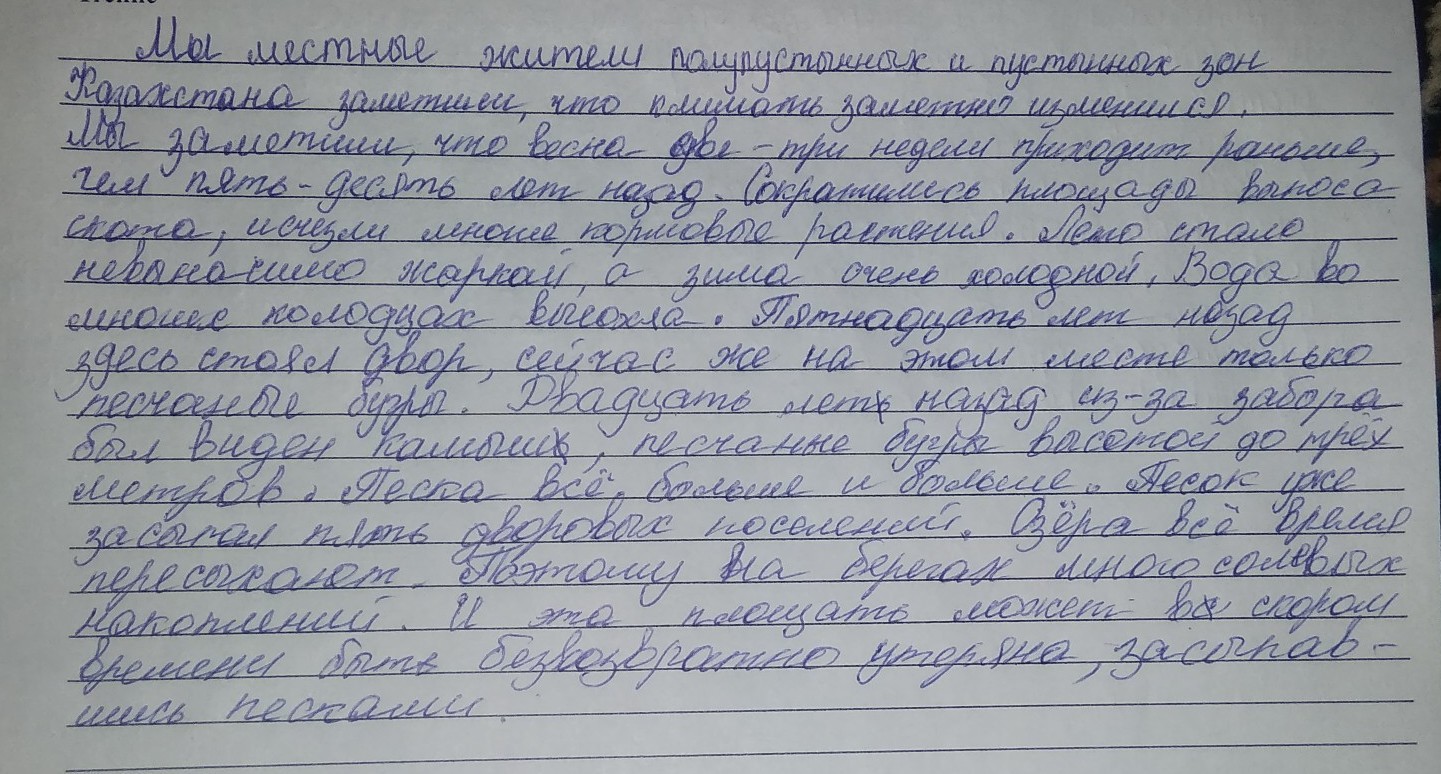 Мы местные жители полупустынных и пустынных зон
Казахстана заметили, что климать заметно изменился.
Мы заметили, что весна две-три недели приходит раньше,
чем пять-десять лет назад. Сократились площады выпоса
скота, исчезли многие кормовые растения. Лето стало
невыначимо жаркой, а зима очень холодной. Вода во
многих колодцах высохла. Пятнадцать лет назад
здесь стоял двор, сейчас же на этом месте только
песчаные бугры. Двадцать лет назад из-за забора
был виден камыш, песчаные бугры высотой до трёх
метров. Песка всё больше и больше. Песок уже
засыпал пять дворовых поселений. Озёра всё время
пересыхают. Поэтому на берегах много солевых
накоплений. И эта площать может в скором
времени быть безвозвратно утеряна, засыпав-
шись песками.